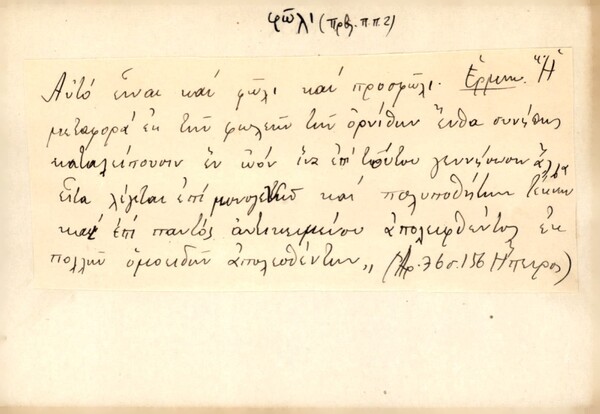 φῶλι (πρβ. π.π. 2)
Αὐτό εἶναι καί φῶλι καί προσφῶλι. Ἑρμην. "Ἡ
μεταφορά ἐκ τῆς φωλεᾶς τῶν ὀρνίθων ἔνθα συνήθως
καταλείπουσιν ἕν ὠόν ἵνα ἐπί τούτου γεννήσωσιν ἄλλα
Εἶτα λέγεται ἐπί μονογενοῦς καί πολυποθήτου τέκνου
καί ἐπί παντός ἀντικειμένου ἀπολειφθέντος ἐκ
πολλῶν ὁμοειδῶν ἀπολεσθέντων„ (Ἀρ. 76 σ. 156 Ἤπειρος)